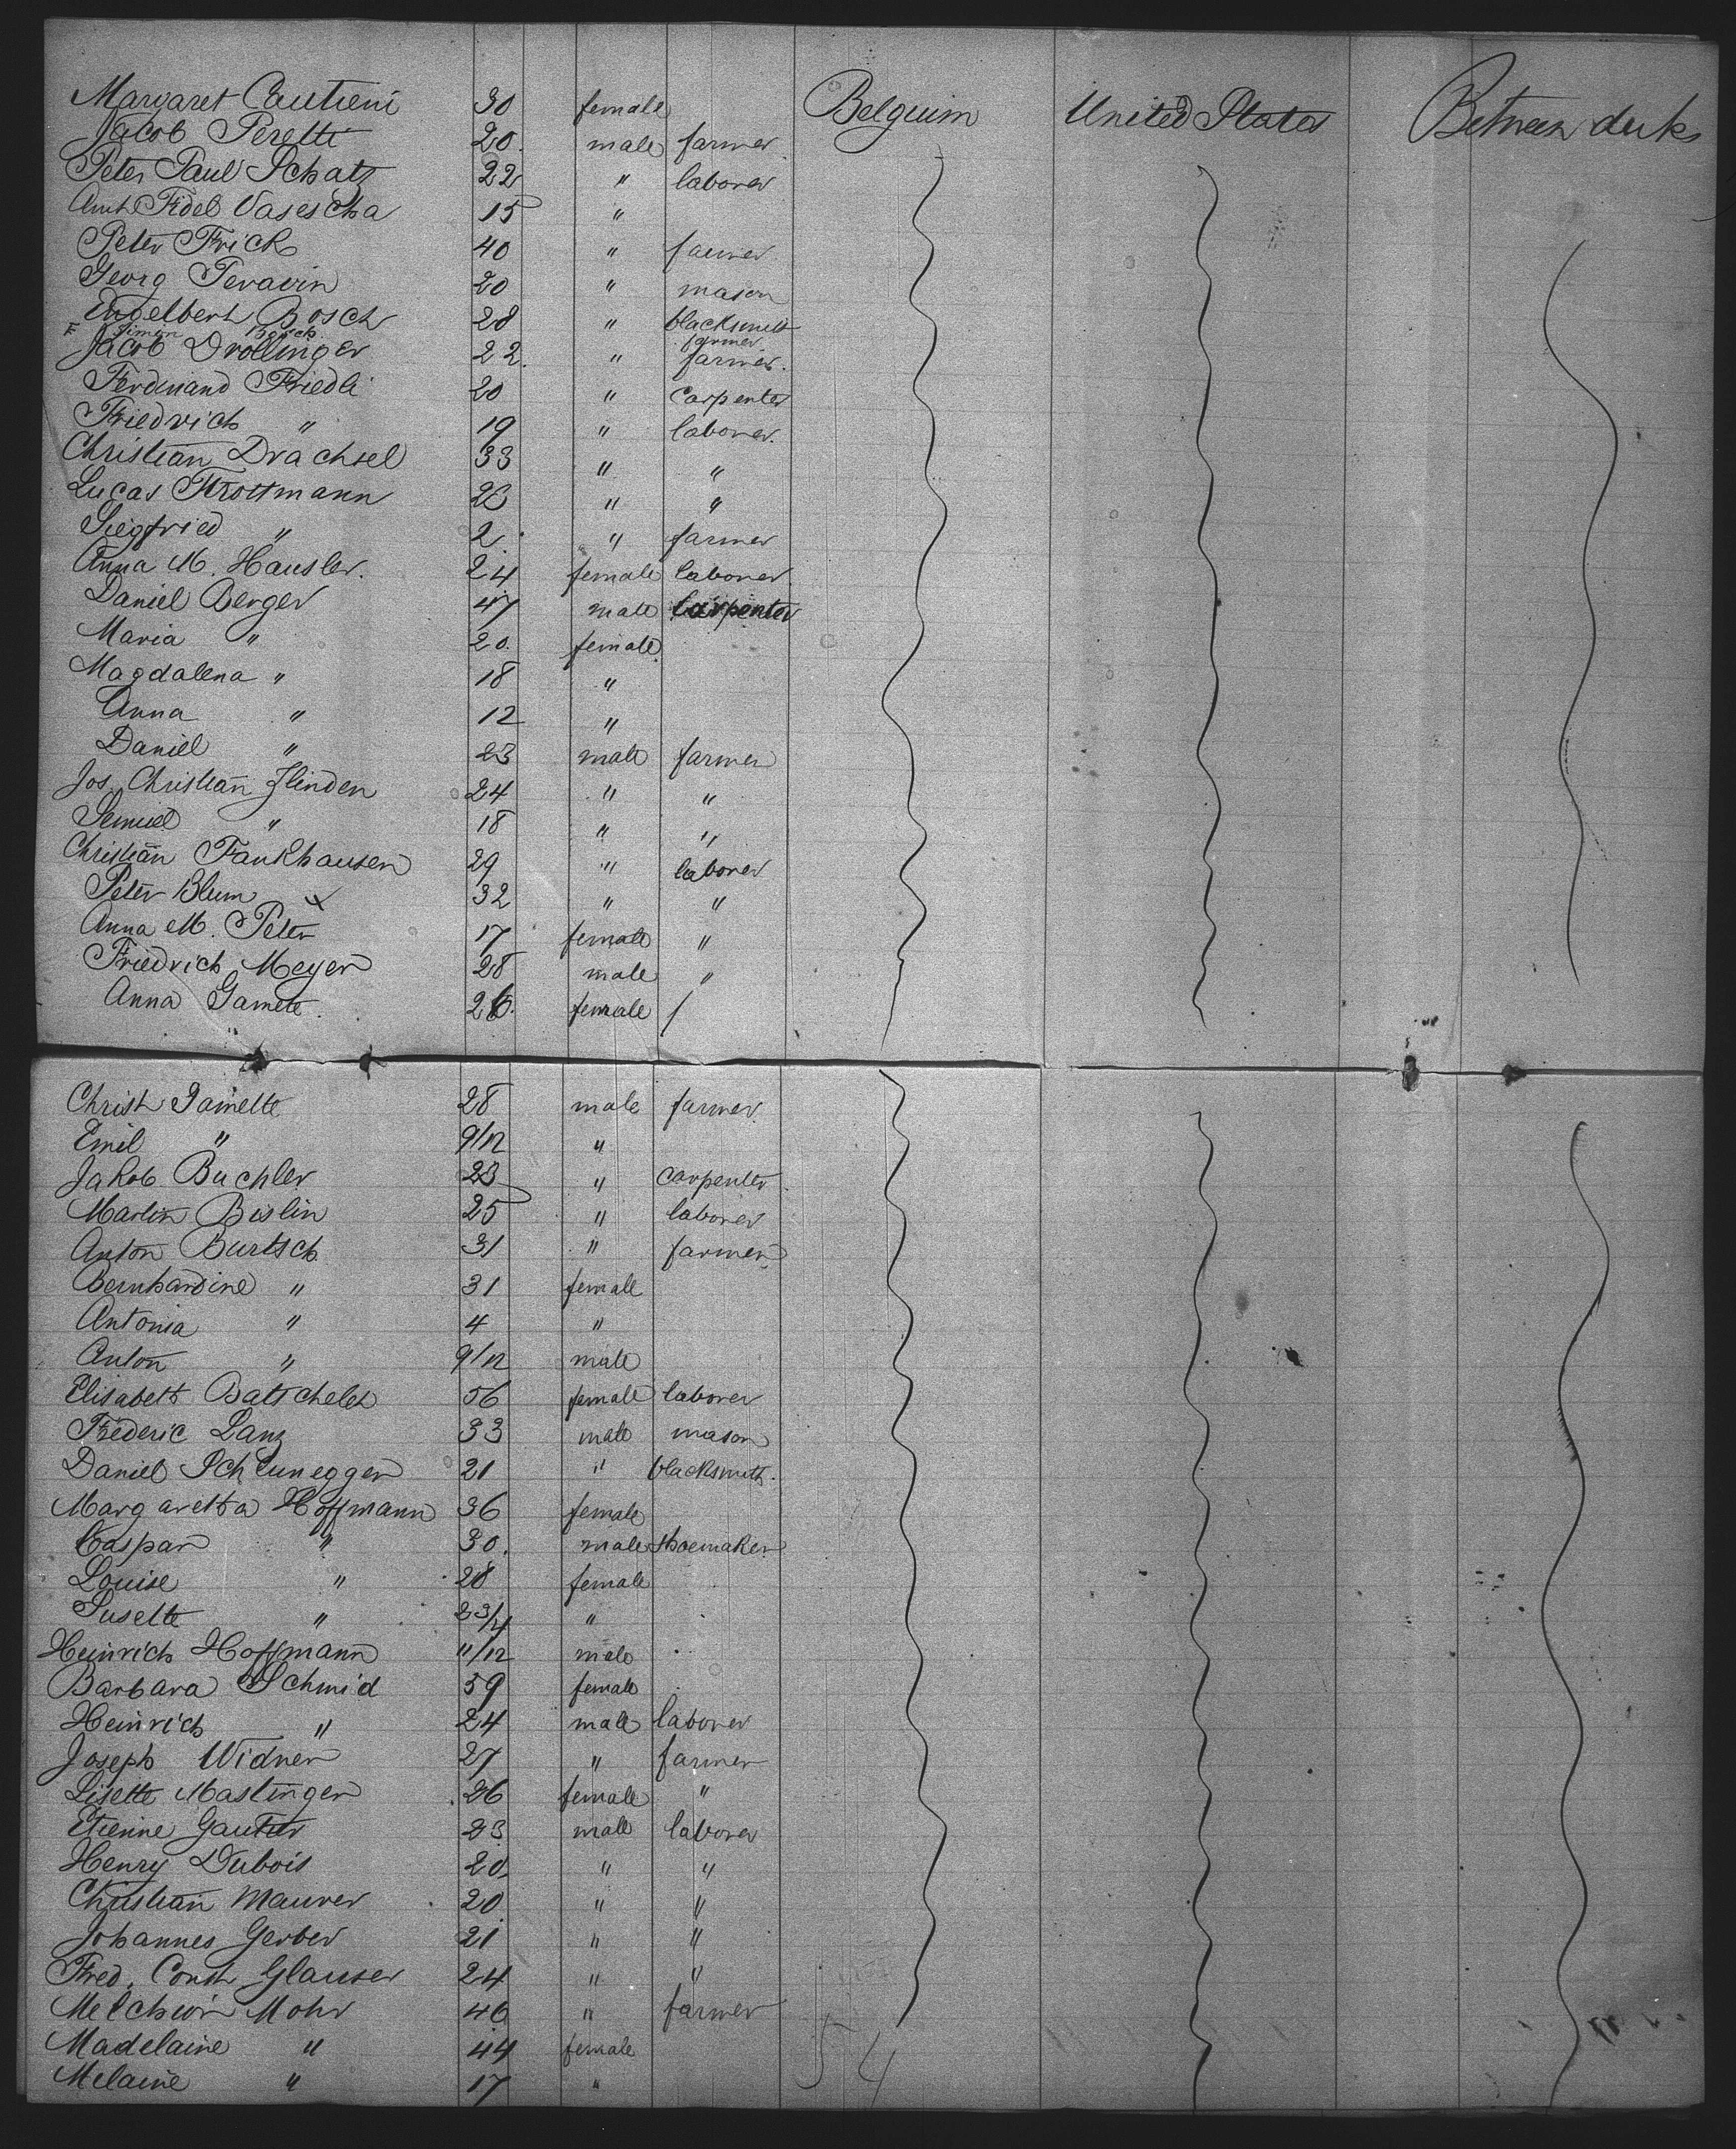 Margaret Cautieni 30 female Belguim United States Between decks
Jacob Peretti 20. male farmer
Peter Paul Schatz 22 " laborer
Fidel Vasescha 15 "
Peter Frick 40 " farmer
Georg Peravin 20 " mason
Engelbert Bosch 28 " blacksmith
F Simon Bosch farmer
Jacob Drollinger 22. " farmer.
Ferdinand Friedli 20 " carpenter
Friedrich " 19 " laborer.
Christian Drachsel 33 " "
Lucas Trottmann 23 " "
Siegfried " 2. " farmer
Anna M. Hausler. 24 female laborer.
Daniel Berger 47 male carpenter
Maria " 20. female
Magdalena " 18 "
Anna " 12 "
Daniel " 23 male farmer
Jos. Christian Flinden 24 " "
Semuel " 18 " "
Christian Fankhauser 29 " laborer
Peter Blum x 32 " "
Anna M. Peter 17 female "
Friedrich Meyer 28 male "
Anna Gamete. 26. female /
Christ Gamette 28 male farmer
Emil " 9/12 "
Jakob Buchler 23 " carpenter.
Martin Bislin 25 " laborer
Anton Burtsch 31 " farmer
Bernhardine " 31 female
Antonia " 4 "
Anton " 9/12 male
Elisabeth Batscheler 56 female laborer
Frederic Lanz 33 male mason
Daniel Schlunegger 21 " blacksmith.
Margaretha Hoffmann 36 female
Caspar " 30. male shoemaker
Louise " 28 female
Susette " 2 3/4 "
Heinrich Hoffmann 11/12 male
Barbara Schmid 59 female
Heinrich " 24 male laborer
Joseph Widner 27 " farmer
Lisette Mastinger 26 female "
Etienne Gautier 23 male laborer
Henry Dubois 20. " "
Christian Maurer 20 " "
Johannes Gerber 21 " "
Fred. Const Glauser 24 " "
Melchior Mohr 46 " farmer
Madelaine " 44 female
Melaine " 17 "
54